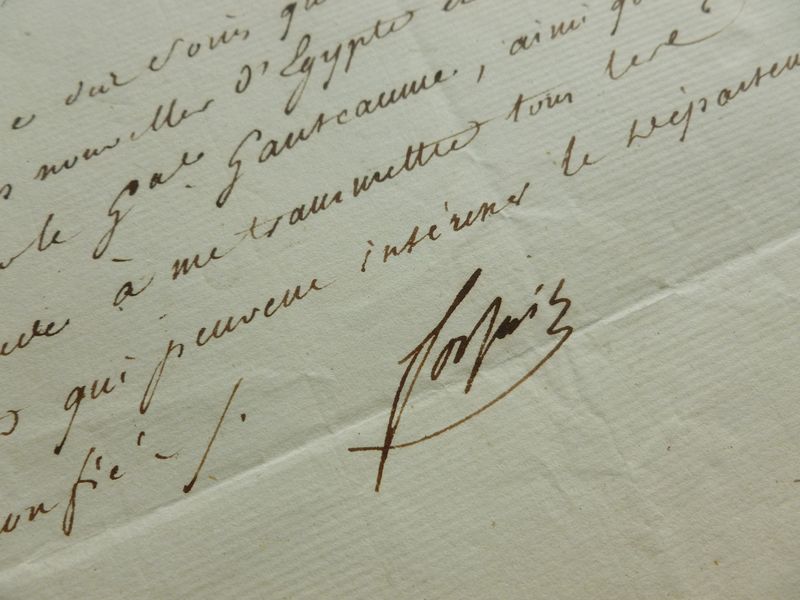 sur Vous qu
nouvelles d'Egypte
le Gal. Ganteaume, ainsi qu
à me transmettre tous les
qui peuvent intéresser le Départem
onfié ./.
Forfait